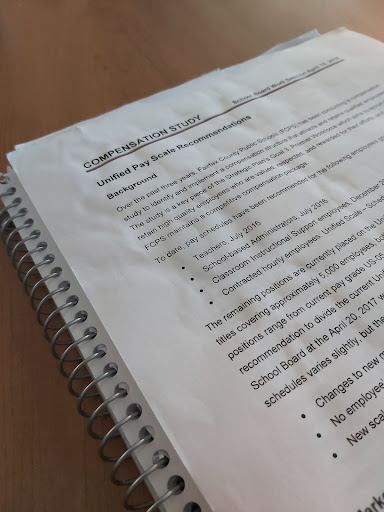 School Board Work Session April 10, 2018
COMPENSATION STUDY
Unified Pay Scale Recommendations
Background
Over the past three years, Fairfax County Public Schools (FCPS) has been conducting
study to identify and implement a compensation structure that attracts and retains qualified
The study is a key piece of the Strategic Plan's Goal 3, Premier Workforce which aims
retain high quality employees who are valued, respected, and rewarded for their efforts,
FCPS maintains a competitive compensation package.
To date, pay schedules have been recommended for the following employees
• Teachers, July 2016
• School-based Administrators, July 2016
• Classroom Instructional Support employees, December
• Contracted hourly employees, Unified Scale - Schedule
The remaining positions are currently placed on the
titles covering approximately 5,000 employees,
positions range from current pay grade US-05
recommendation to divide the current U
School Board at the April 20, 2017
schedules varies slightly, but the
• Changes to new
• No employee
• New sca